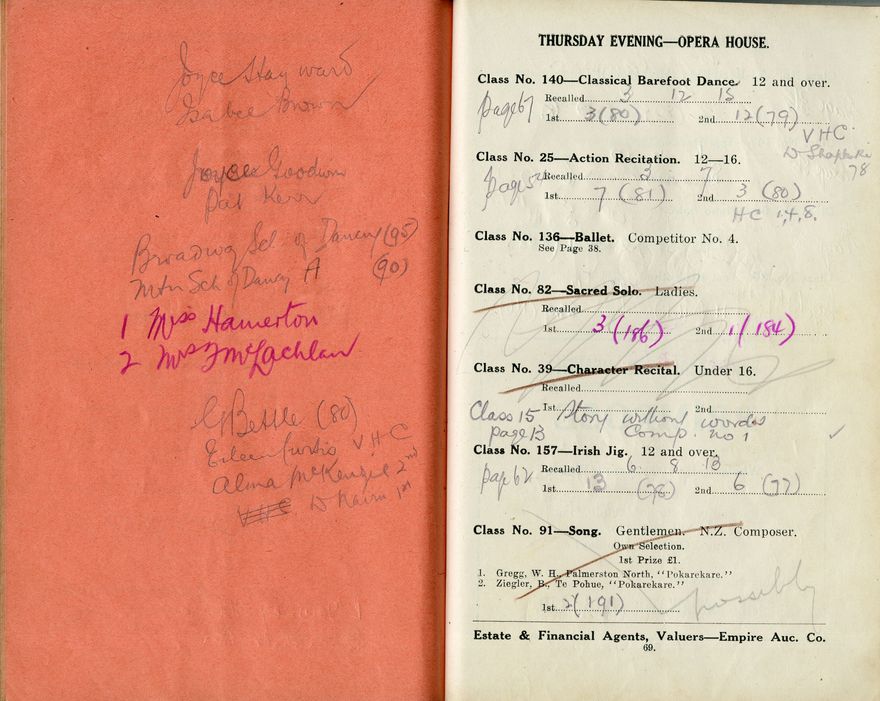 Joyce Hayward
Isabel Brown
Joyce Goodwin
Pat Kerr
Broadway Sch of Dancing (95)
Mtn Sch of Dancing A (90)
1 Miss Hamerton
2 Mrs J McLachlan
G Bettle (80)
Eileen Curtis VHC
Alma McKenzie 2nd
VHC D 1st
THURSDAY EVENING—OPERA HOUSE.
Class No. 140—Classical Barefoot Dance. 12 and over.
page 67 Recalled 3 12 15
1st 3 (80) 2nd 12 (79)
VHC
78
Class No. 25—Action Recitation. 12—16.
page Recalled 3 7
1st 7 (81) 2nd 3 (80)
HC 1,4,8.
Class No. 136—Ballet. Competitor No. 4.
See Page 38.
Class No. 82—Sacred Solo. Ladies.
Recalled
1st 3 (186) 2nd 1 (184)
Class No. 39—Character Recital. Under 16.
Recalled
1st 2nd
Class 15 Story without words
page 13 Comp. no 1
Class No. 157—Irish Jig. 12 and over.
page 62 Recalled 6 8 13
1st 13 (78) 2nd 6 (77)
Class No. 91—Song. Gentlemen. N.Z. Composer.
Own Selection.
1st Prize £1.
1. Gregg, W. H., Palmerston North, "Pokarekare."
2. Ziegler, B., Te Pohue, "Pokarekare."
1st 2 (191) possibly
Estate & Financial Agents, Valuers—Empire Auc. Co.
69.